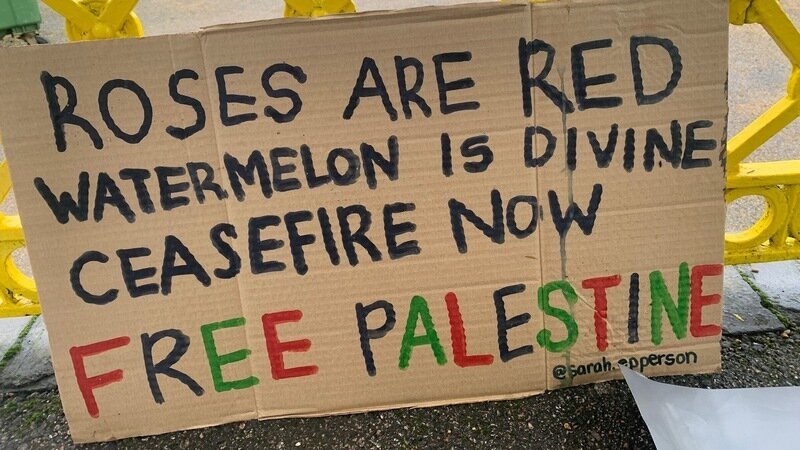 ROSES ARE RED
WATERMELON IS DIVINE
CEASEFIRE NOW
FREE PALESTINE
@sarah.epperson